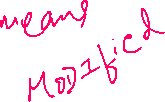 means
Modified